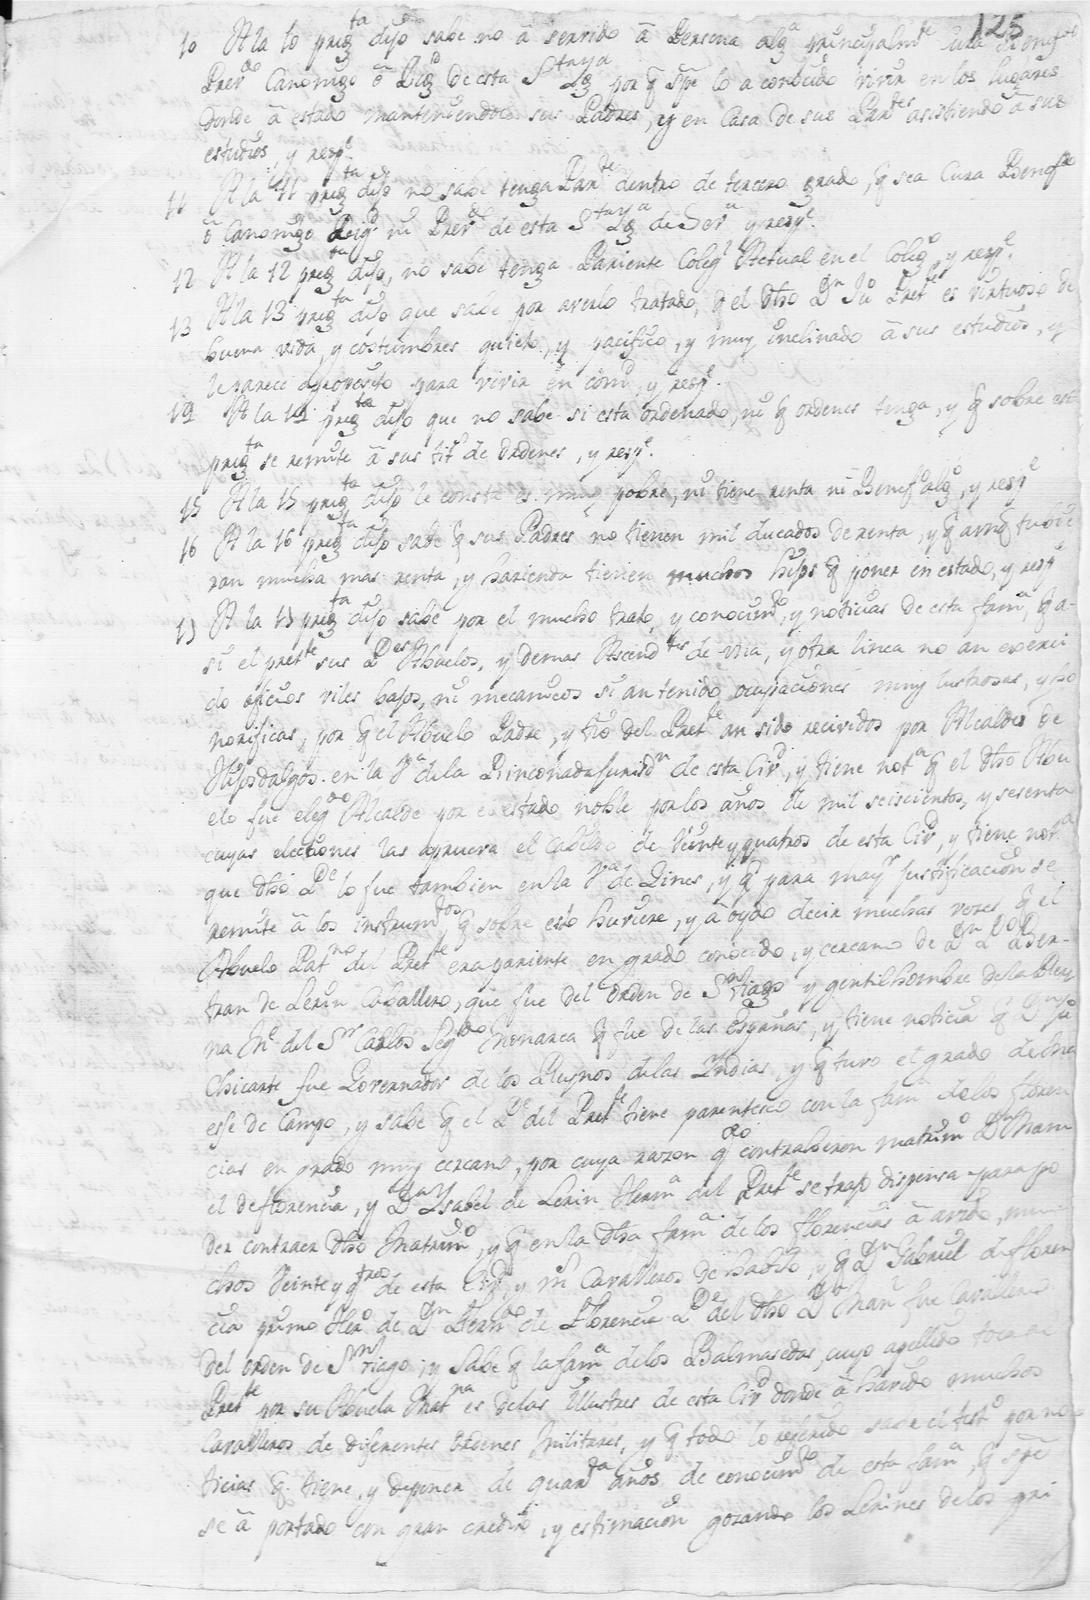 125
10 A la 10 preg.ta dijo sabe no ā servido ā Persona alg.a principalm.te Cura Benef.do
Prev.do Canonigo ō Dig.d de esta S.ta Yg.a por q̄ Spr̄e lo a conocido vivir en los lugares
donde ā estado manteniendole sus Padres, y en Casa de sus Par.tes asistiendo ā sus
estudios, y resp.e
11 A la 11 preg.ta dijo no sabe tenga Par.te dentro de tercero grado, q̄ sea Cura Benef.do
ō Canonigo Dig.d ni Prev.do de esta S.ta Yg.a de Sev.a y resp.e
12 A la 12 preg.ta dijo, no sabe tenga Pariente Coleg.l Actual en el Coleg.o, y resp.e
13 A la 13 preg.ta dijo que sabe por averlo tratado, q̄ el dho D.n Ju.o Pret.te es virtuoso de
buena vida, y costumbres quieto, y pacifico, y muy inclinado ā sus estudios, y
le parece aproposito para vivir en com.d y resp.e
14 A la 14 preg.ta dijo que no sabe si esta ordenado, ni q̄ ordenes tenga, y q̄ sobre est
preg.ta se remite ā sus tit.s de ordenes, y resp.e
15 A la 15 preg.ta dijo le consta es muy pobre, ni tiene renta ni Benef.o alg.o, y resp.e
16 A la 16 preg.ta dijo sabe q̄ sus Padres no tienen mil ducados de renta, y q̄ aunq̄ tuvie
ran mucha mas renta, y hazienda tienen muchos hijos q̄ poner en estado, y resp.e
17 A la 17 preg.ta dijo sabe por el mucho trato, y conocim.to, y noticias de esta fam.a, q̄ a-
si el pret.te sus P.des Abuelos, y demas Ascend.tes de una, y otra linea no an exerci
do oficios viles bajos, ni mecanicos si an tenido ocupaciones muy lustrosas, y ho
norificas, por q̄ el Abuelo Padre, y tio del Pret.te an sido recividos por Alcaldes de
Hijosdalgos en la V.a de la Rinconada Jurisd.n de esta Civ.d, y tiene not.a q̄ el dho Abu
elo fue eleg.do Alcalde por el estado noble por los años de mil seiscientos, y sesenta
cuyas elecciones las aprueva el Cabildo de Veinte y quatros de esta Civ.d, y tiene not.a
que dho P.de lo fue tambien en la V.a de Pines, y q̄ para may.r justificacion se
remite ā los instrum.tos q̄ sobre esto huviere, y ā oydo decir muchas vezes q̄ el
Abuelo Pat.no del Pret.te era pariente en grado conocido, y cercano de D.n P.o Ber-
tran de Lerin Caballero, que fue del orden de S.n tiago y gentilhombre de la Rey
na M.e del S.r Carlos Seg.do Monarca q̄ fue de las Españas, y tiene noticia q̄ D.n
Chicarte fue Governador de los Reynos de las Indias, y q̄ tuvo el grado de Ma
esse de Campo, y sabe q̄ el P.e del Pret.te tiene parentesco con la fam.a de los floren
cias en grado muy cercano, por cuya razon q.do contraheron matrim.o D.n Manu
el de florencia, y D.a Ysabel de Lerin Herm.a del Pret.te se trajo dispensa para po
der contraer dho Matrim.o, y q̄ en la dha fam.a de los florencias ā avido, mu
chos Veinte y q.tros de esta Civ.d, y Cavalleros de habito, y q̄ D.n Gabriel de floren
cia primo Her.o de D.n Fern.do de Florencia P.de del dho D.n Man.l fue Cavallero
del orden de S.n tiago, y Sabe q̄ la fam.a de los Balmasedas, cuyo apellido toca al
Pret.te por su Abuela Mat.na es de las Illustres de esta Civ.d donde ā havido muchos
Cavalleros de diferentes ordenes Militares, y q̄ todo lo referido save el test.o por no
ticias q̄ tiene, y deponer de quar.ta años de conocim.to de esta fam.a, q̄ spr̄e
se ā portado con gran credito, y estimacion gozando los Lerines de los pri